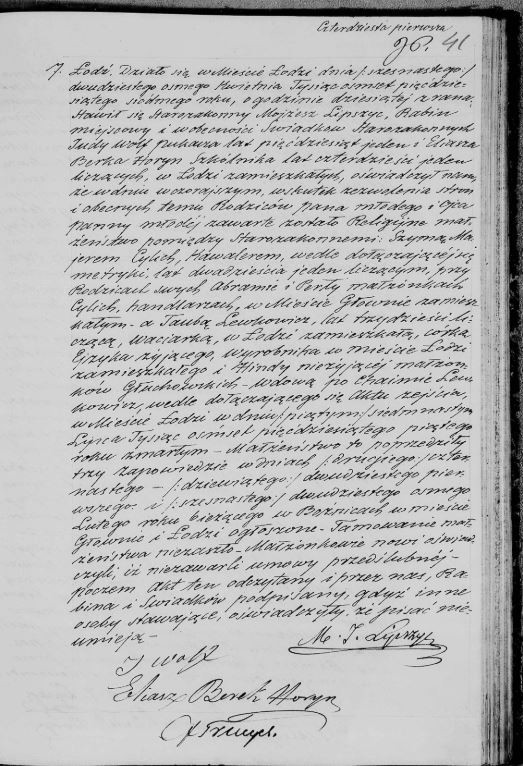 Czterdziesta pierwsza
36. 41
7. Łódź. Działo się w Mieście Łodzi dnia /: szesnastego :/
dwudziestego ósmego Kwietnia Tysiąc ośmset pięćdzie-
siątego siódmego roku, o godzinie dziesiątej z rana,
Stawił się Starozakonny Mojżesz Lipszyc, Rabin
miejscowy i w obecności Świadków Starozakonnych
Judy Wolf lat pięćdziesiąt jeden i Eliasza
Berka Horyn Szkólnika lat czterdzieści jeden
liczących, w Łodzi zamieszkałych, oświadczył nam,
że w dniu wczorajszym, wskutek zezwolenia stron
i obecnych temu Rodziców pana młodego i Ojca
panny młodéj zawarte zostało Religijne mał-
żeństwo pomiędzy Starozakonnemi: Szymą Ma-
jerem Cylich, Kawalerem, wedle dołączającej się
metryki, lat dwadzieścia jeden liczącym, przy
Rodzicach swych Abramie i Perły małżonkach
Cylich, handlarzach, w Mieście Głownie zamiesz-
kałym - a Taubą Lewkowicz, lat trzydzieści li-
czącą, waciarką, w Łodzi zamieszkałą, córką
Eyzyka żyjącego, wyrobnika w mieście Łodzi
zamieszkałego i Hindy nieżyjącej małżon-
ków Głuchowskich - wdową po Chaimie Lew-
kowicz, wedle dołączającego się Aktu zejścia,
w Mieście Łodzi w dniu /: piątym :/ siedmnastym
Lipca Tysiąc ośmset pięćdziesiątego piątego
roku zmarłym - Małżeństwo to poprzedziły
trzy zapowiedzie w dniach /: drugiego :/ czter-
nastego - /: dziewiątego :/ dwudziestego pier-
wszego i /: szesnastego :/ dwudziestego ósmego
Lutego roku bieżącego w Bożnicach w mieście
Głownie i Łodzi ogłoszone - Tamowanie mał-
żeństwa niezaszło - Małżonkowie nowi oświad-
czyli, iż niezawarli umowy przedślubnéj -
poczem Akt ten odczytany i przez nas, Ra-
bina i Świadków podpisany, gdyż inne
osoby stawające, oświadczyły, że pisać nie-
umieją -
M. J. Lipszyc
J Wolf
Eliasz Berek Horyn